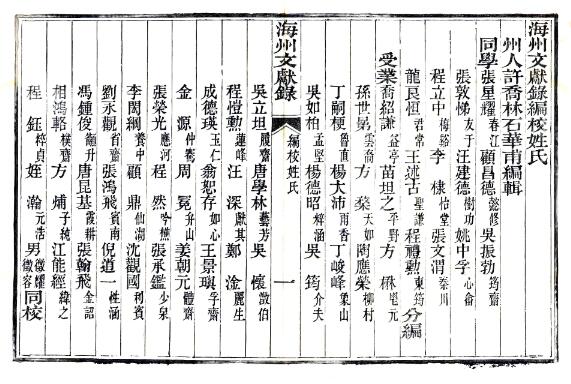 海州文獻錄編校姓氏
州人許喬林石華甫編輯
同學張星耀春江 顧昌德懿修 吳振勃筠齋
張敦悌友于 汪建德樹功 姚中孚心侖
程立中梅谿 李棣怡堂 張文渭秦川
龍良恒君常 王述古聖謙 程禮勳東筠 分編
受業喬紹謙益亭 苗坦之平野 方楙堅元
孫世第雲裔 方燊天如 陶應榮柳村
丁嗣梗魯直 楊大沛雨香 丁峻峰象山
吳如柏孟堅 楊德昭梓涵 吳筠介夫
海州文獻錄 編校姓氏 一
吳立坦履齋 唐學林藝芳 吳懷澂伯
程愷勳蓮峰 汪深獻其 鄭淦麗生
成德瑛玉仁 翁恕存如心 王景璵孚齋
金源仲騫 周冕升山 姜朝元體齋
張榮光應河 程然吟樵 張承鑑少泉
李閎綱養中 顧鼎仙湖 沈觀國利賓
劉永觀省齋 張鴻飛賓南 倪道一性涵
馮鍾俊鶴升 唐昆基霞耕 張翰飛金詔
相鴻輅樸齋 方埔子純 江能經緯之
程鈺梓貞 姪瀚元浩 男徵耀徵容 同校